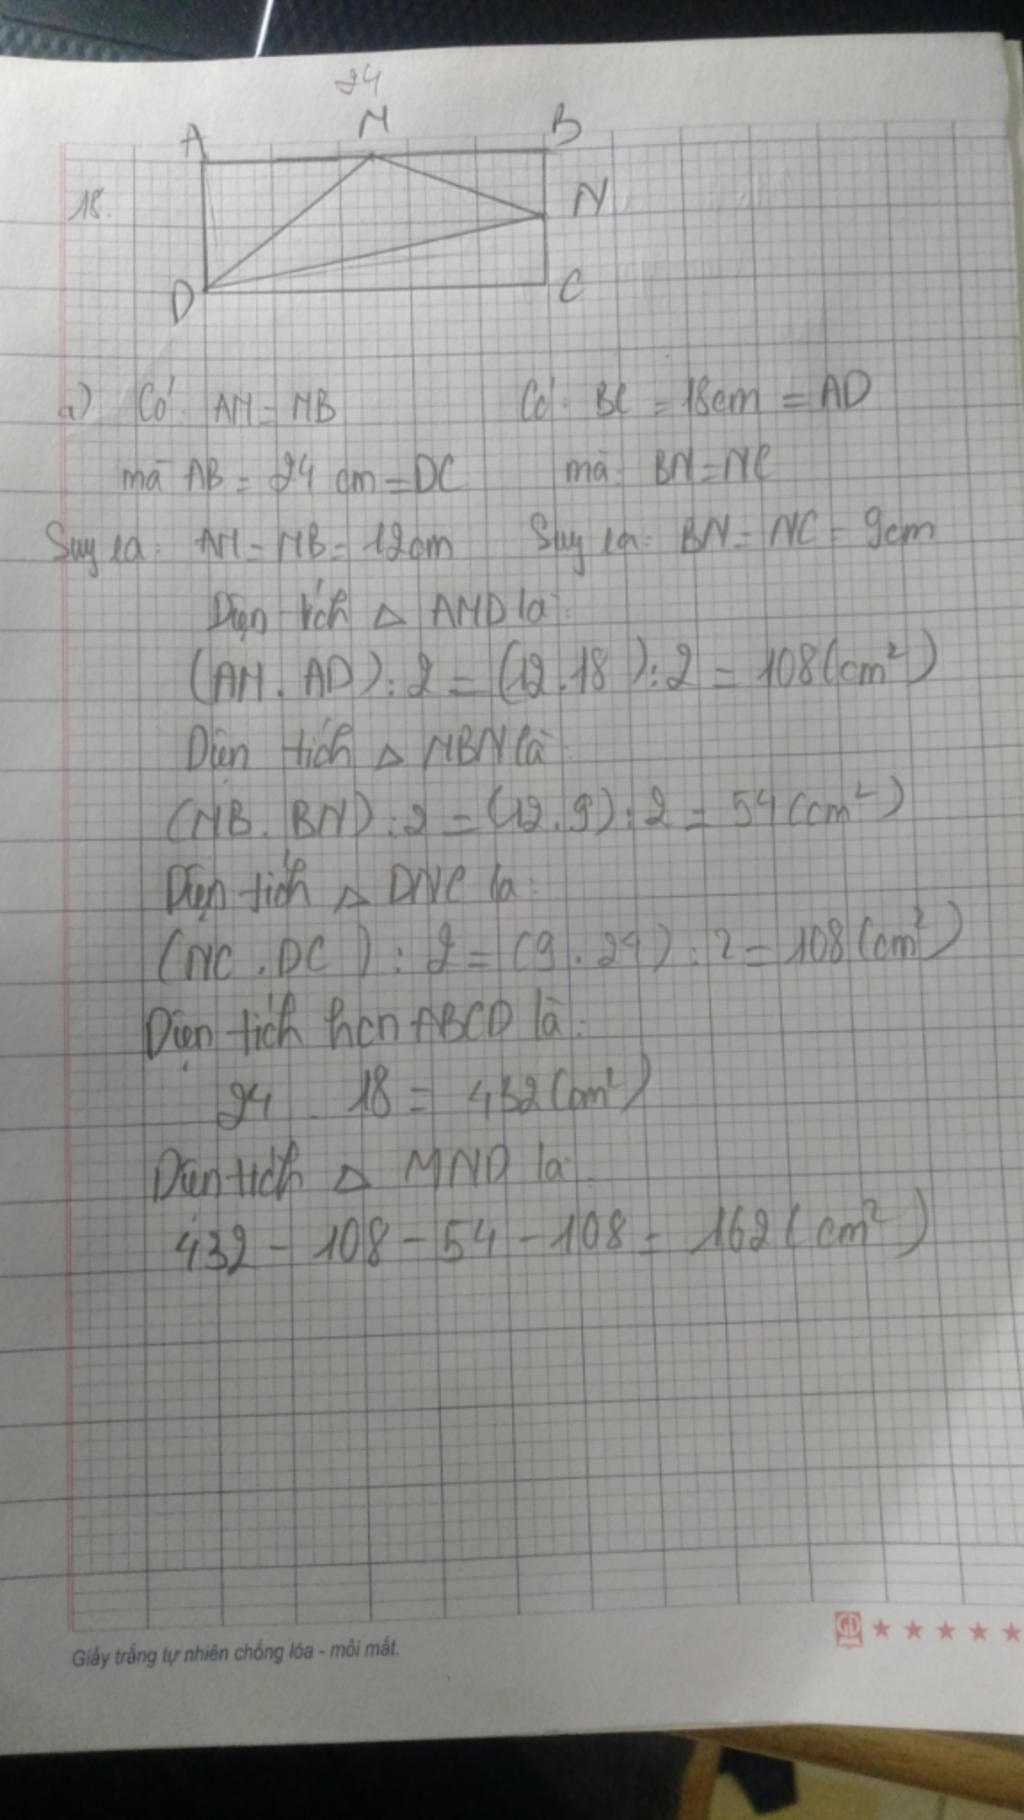 24
A M B
18.
N
D C
a) Có AM = MB
Có: BC = 18cm = AD
mà AB = 24 cm = DC
mà: BN = NC
Suy ra: AM = MB = 12cm
Suy ra: BN = NC = 9cm
Diện tích △ AMD là:
(AM . AD) : 2 = (12 . 18) : 2 = 108(cm²)
Diện tích △ MBN là
(MB . BN) : 2 = (12 . 9) : 2 = 54 (cm²)
Diện tích △ DNC là:
(NC . DC) : 2 = (9 . 24) : 2 = 108 (cm²)
Diện tích hcn ABCD là:
24 . 18 = 432 (cm²)
Diện tích △ MND là:
432 - 108 - 54 - 108 = 162 (cm²)
GD ★ ★ ★ ★ ★
Giấy trắng tự nhiên chống lóa - mỏi mắt.